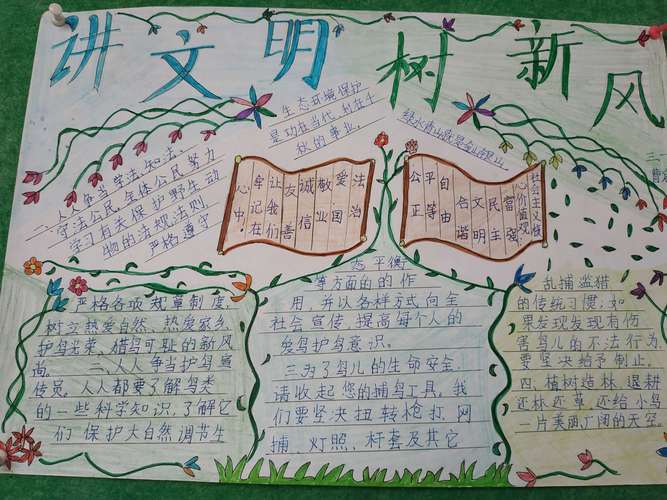 讲文明树新风
生态环境保护
是功在当代、利在千
秋的事业。
绿水青山就是金山银山
二、人人争当学法、知法、
守法公民,全体公民努力
学习有关保护野生动
物的法规法则,
严格遵守
社会主义核
心价值观:
富强
民主
文明
和谐
自由
平等
公正
法治
爱国
敬业
诚信
友善
让我们
牢记在
心中!
严格各项规章制度,
树立热爱自然、热爱家乡,
护鸟光荣、猎鸟可耻的新风
尚。 二、人人争当护鸟宣
传员,人人都要了解鸟类
的一些科学知识,了解它
们保护大自然、调节生
态平衡
等方面的的作
用,并以各种方式向全
社会宣传,提高每个人的
爱鸟护鸟意识。
三、为了鸟儿的生命安全,
请收起您的捕鸟工具,我
们要坚决扭转枪打、网
捕、灯照、杆套及其它
乱捕滥猎
的传统习惯;如
果发现发现有伤
害鸟儿的不法行为,
要坚决给予制止。
四、植树造林、退耕
还林还草,还给小鸟
一片美丽广阔的天空。
三、